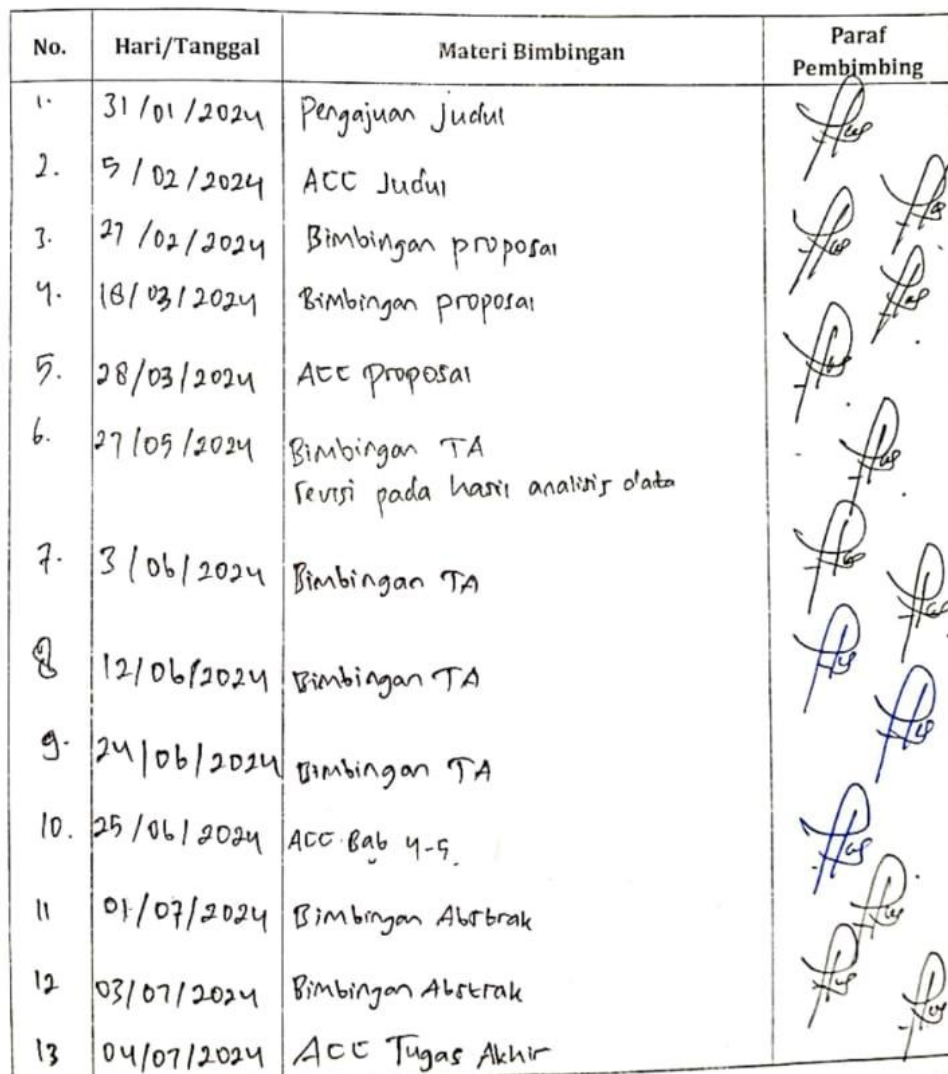 No. Hari/Tanggal Materi Bimbingan Paraf Pembimbing
1. 31/01/2024 Pengajuan Judul
2. 5/02/2024 ACC Judul
3. 27/02/2024 Bimbingan proposal
4. 18/03/2024 Bimbingan proposal
5. 28/03/2024 ACC proposal
6. 27/05/2024 Bimbingan TA
revisi pada hasil analisis data
7. 3/06/2024 Bimbingan TA
8 12/06/2024 Bimbingan TA
9. 24/06/2024 Bimbingan TA
10. 25/06/2024 ACC Bab 4-5.
11 01/07/2024 Bimbingan Abstrak
12 03/07/2024 Bimbingan Abstrak
13 04/07/2024 ACC Tugas Akhir